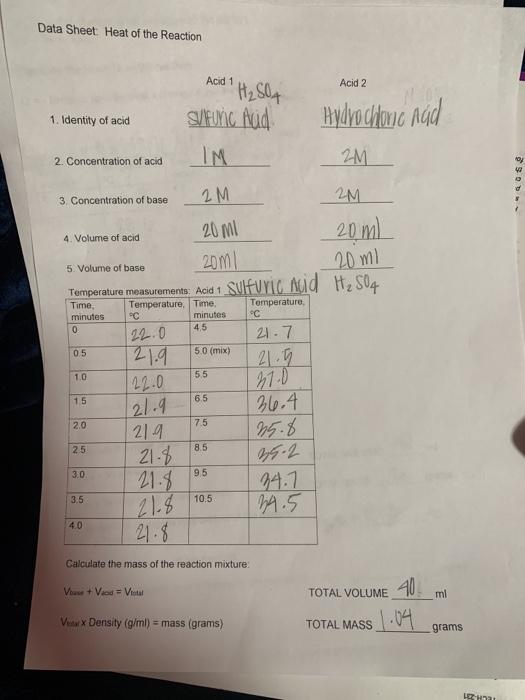 Data Sheet: Heat of the Reaction
Acid 1 H₂SO₄ Acid 2
1. Identity of acid Sulfuric Acid Hydrochloric Acid
2. Concentration of acid 1M 2M
3. Concentration of base 2M 2M
4. Volume of acid 20 ml 20 ml
5. Volume of base 20ml 20 ml
Temperature measurements: Acid 1 Sulfuric Acid H₂SO₄
Time, minutes Temperature, °C Time, minutes Temperature, °C
0 22.0 4.5 21.7
0.5 21.9 5.0 (mix)
1.0 22.0 5.5 37.0
1.5 21.9 6.5 36.4
2.0 21.9 7.5 35.8
2.5 21.8 8.5 35.2
3.0 21.8 9.5 34.7
3.5 21.8 10.5 34.5
4.0 21.8
Calculate the mass of the reaction mixture:
Vbase + Vacid = Vtotal TOTAL VOLUME 40 ml
Vtotal x Density (g/ml) = mass (grams) TOTAL MASS 1.04 grams